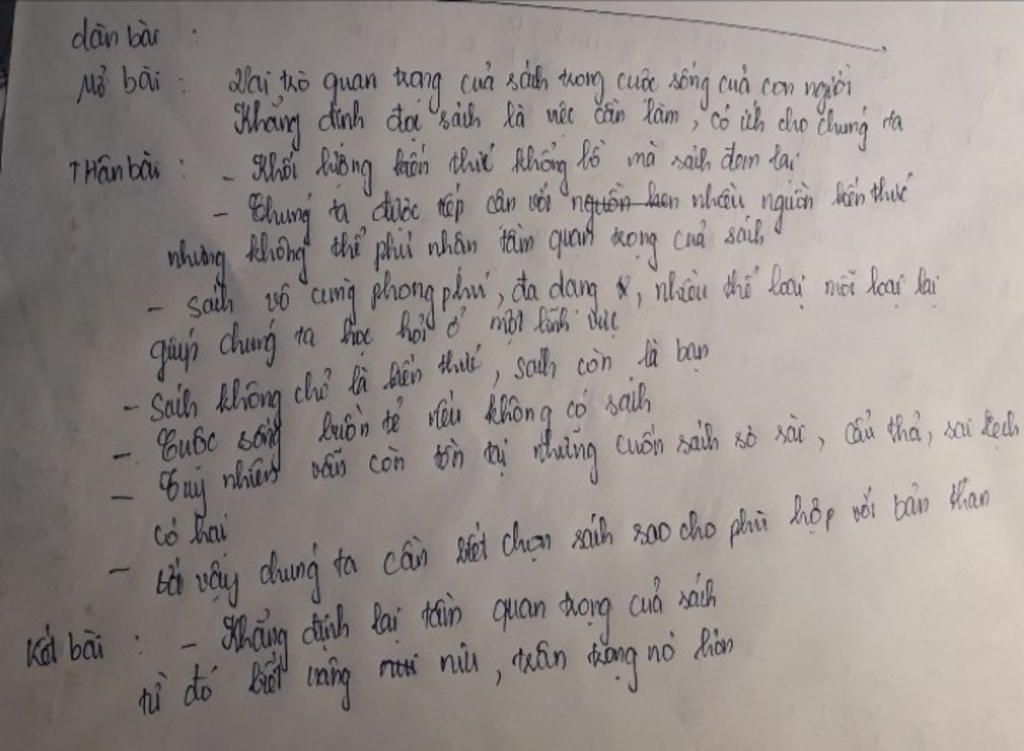 dàn bài :
Mở bài : Vai trò quan trọng cuả sách trong cuộc sống cuả con người
Khẳng định đọc sách là việc cần làm, có ích cho chúng ta
Thân bài : - Khối lượng kiến thức khổng lồ mà sách đem lại
- Chúng ta được tiếp cận với nhiều nguồn kiến thức
nhưng không thể phủ nhận tầm quan trọng cuả sách
- Sách vô cùng phong phú, đa dạng, nhiều thể loại mỗi loại lại
giúp chúng ta học hỏi ở một lĩnh vực
- Sách không chỉ là kiến thức, sách còn là bạn
- Cuộc sống buồn tẻ nếu không có sách
- Tuy nhiên vẫn còn tồn tại những cuốn sách sơ sài, cẩu thả, sai lệch
có hại
- bởi vậy chúng ta cần biết chọn sách sao cho phù hợp với bản thân
Kết bài : - Khẳng định lại tầm quan trọng cuả sách
từ đó biết nâng niu, trân trọng nó hơn